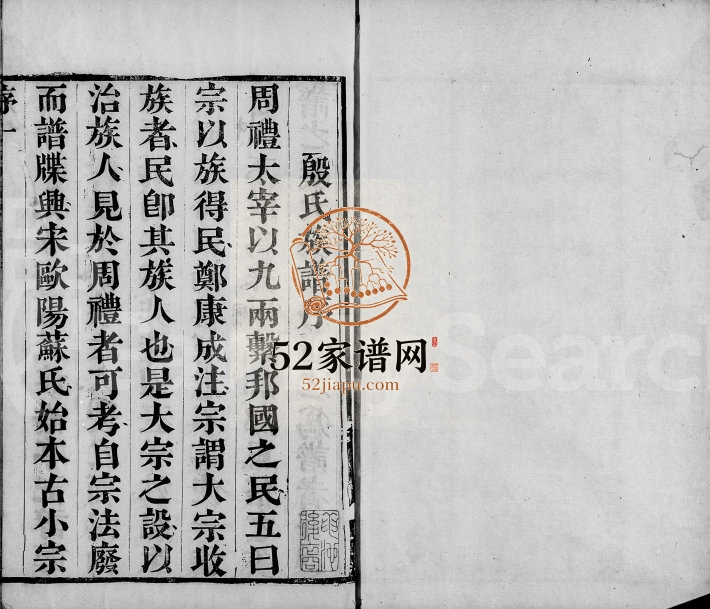 殷氏族譜序
周禮太宰以九兩繫邦國之民五曰
宗以族得民鄭康成注宗謂大宗收
族者民卽其族人也是大宗之設以
治族人見於周禮者可考自宗法廢
而譜牒興宋歐陽蘇氏始本古小宗
序一
52家谱网
52jiapu.com
Search